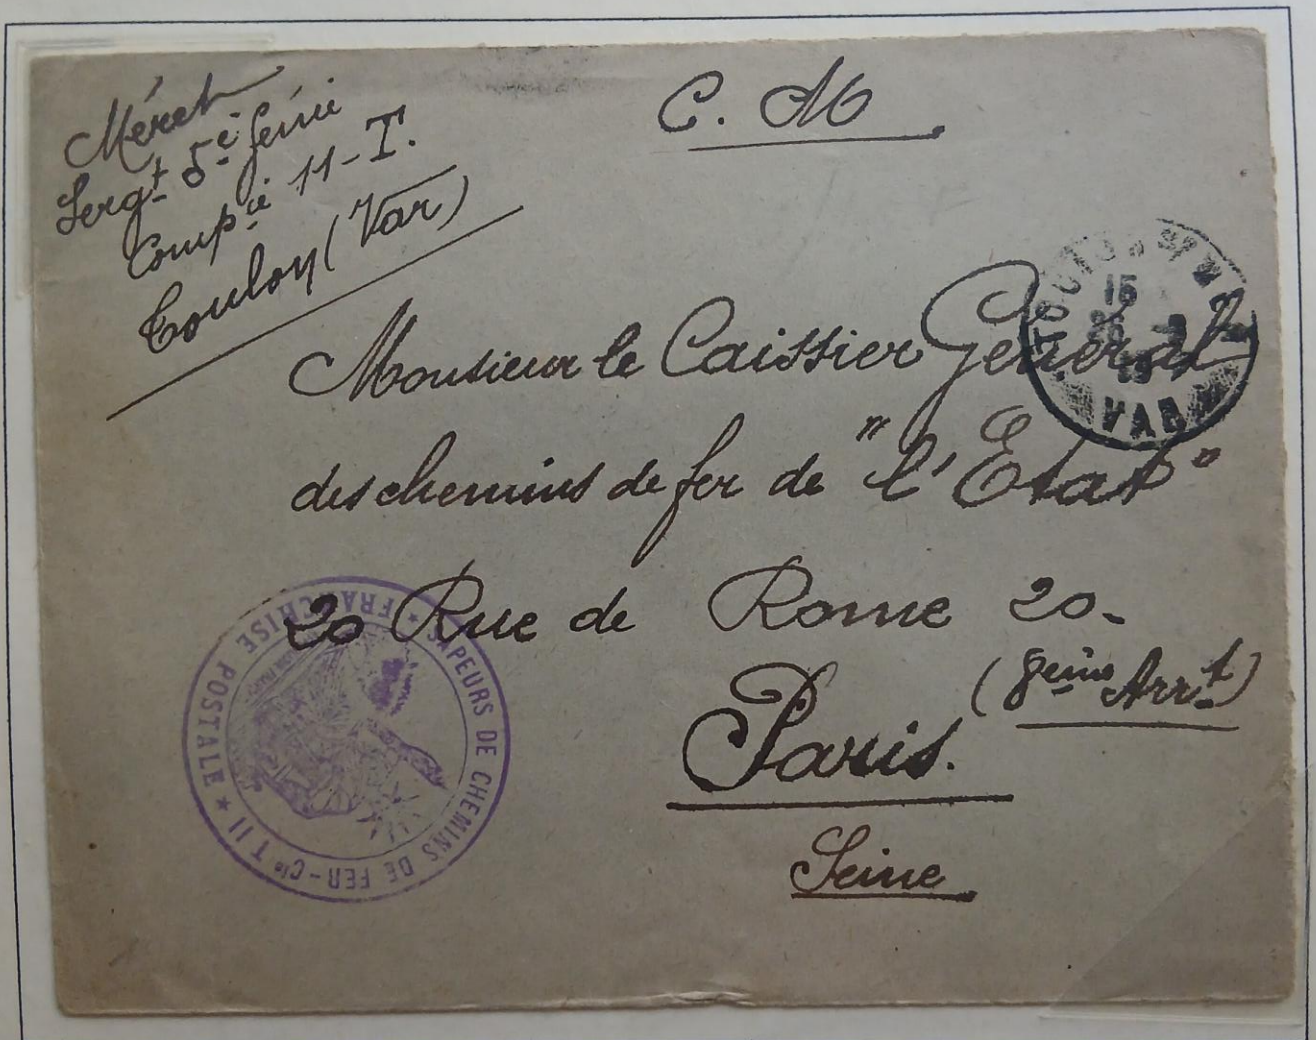 Méret
Sergt 5e Génie
Compie 11-T.
Toulon (Var)
C. M
15
19
VAR
Monsieur le Caissier Général
des chemins de fer de "l'Etat"
20 Rue de Rome 20-
(8eme Arrt)
Paris.
Seine
SAPEURS DE CHEMINS DE FER - Cie T 11 * FRANCHISE POSTALE *